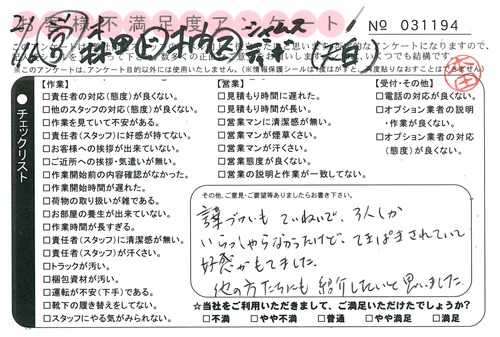 お客様不満足度アンケート
№ 031194
※このアンケートは、アンケート目的以外には使用いたしません。(※情報保護シールは1度はがすと、再度貼りなおすことはできません)
チェックリスト
【作業】
□責任者の対応(態度)が良くない。
□他のスタッフの対応(態度)が良くない。
□作業を見ていて不安がある。
□責任者(スタッフ)に好感が持てない。
□お客様への挨拶が出来ていない。
□ご近所への挨拶・気遣いが無い。
□作業開始前の内容確認がなかった。
□作業開始時間が遅れた。
□荷物の取り扱いが雑である。
□お部屋の養生が出来ていない。
□作業時間が長すぎる。
□責任者(スタッフ)に清潔感が無い。
□責任者(スタッフ)が汗くさい。
□トラックが汚い。
□梱包資材が汚い。
□運転が不安(下手)である。
□靴下の履き替えをしてない。
□スタッフにやる気がみられない。
【営業】
□見積もり時間に遅れた。
□見積もり時間が長い。
□営業マンに清潔感が無い。
□営業マンが煙草くさい。
□営業マンが汗くさい。
□営業態度が良くない。
□営業の説明と作業が一致してない。
【受付・その他】
□電話の対応が良くない。
□オプション業者の説明・作業が良くない。
□オプション業者の対応(態度)が良くない。
その他、ご意見・ご要望等ありましたらお書き下さい。
言葉づかいも ていねいで、3人しか
いらっしゃらなかったけど、てきぱきされていて
好感がもてました。
他の方たちにも 紹介したいと思いました。
☆当社をご利用いただきまして、ご満足いただけたでしょうか?
□不満 □やや不満 □普通 □やや満足 □満足